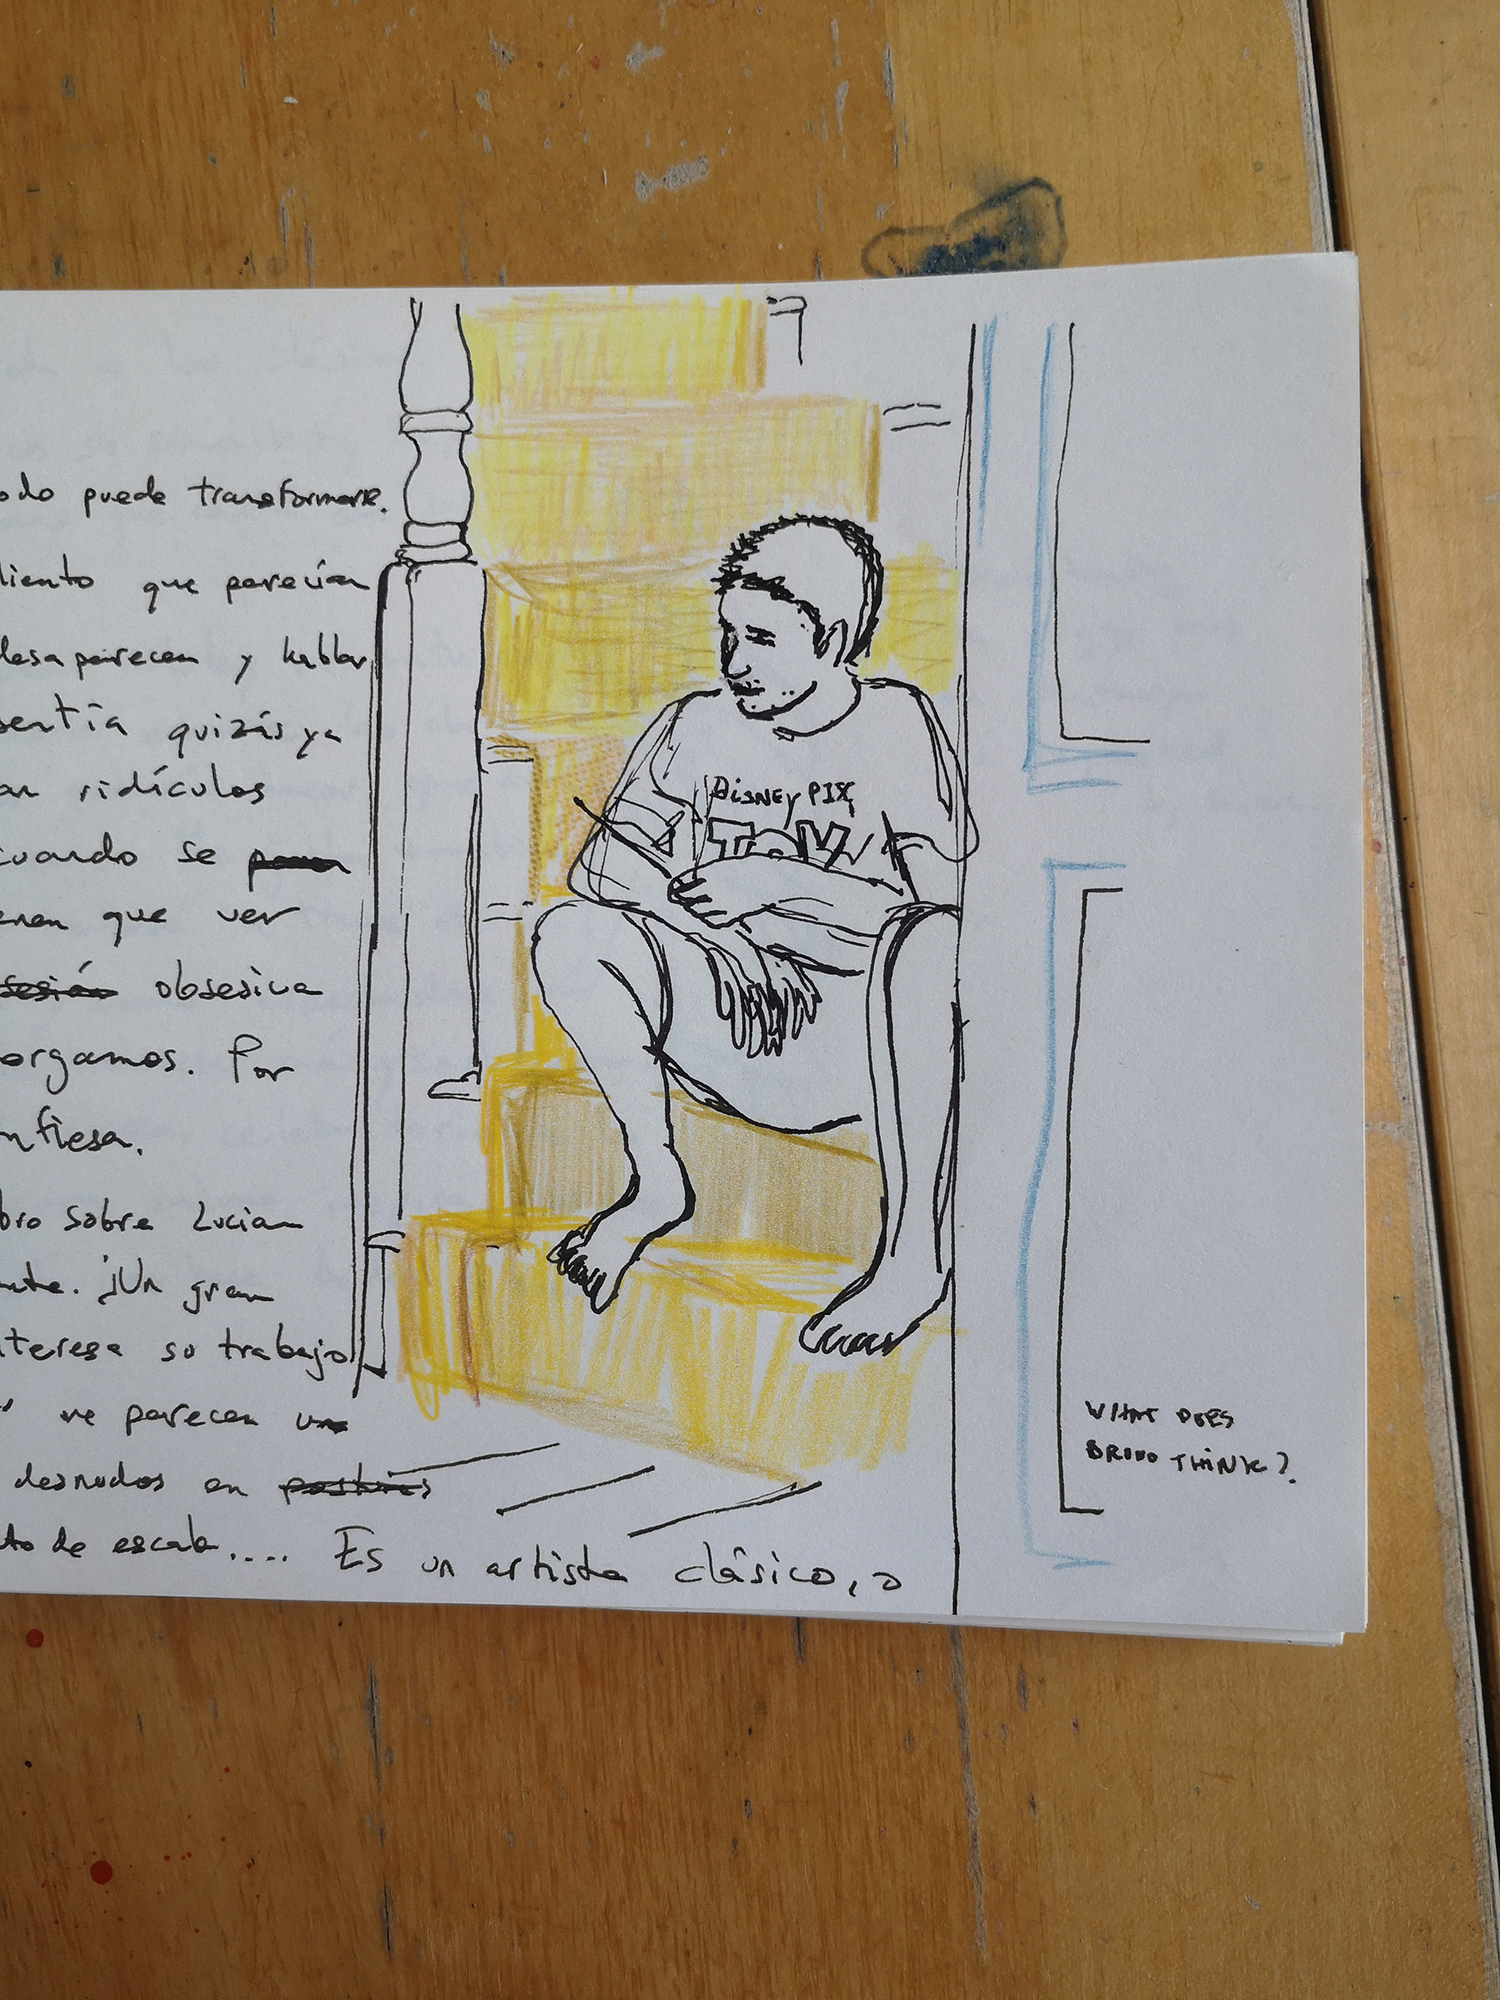 odo puede transformarse.
liento que parecían
desaparecen y hablar
sentía quizás ya
an ridículos
cuando se
enen que ver
obsesiva
orgamos. Por
nfiesa.
bro sobre Lucian
nte. ¡Un gran
nteresa su trabajo
" me parecen
desnudos en
to de escala.... Es un artista clásico, o
DISNEY PIX
TOY
WHAT DOES
BRUNO THINK?